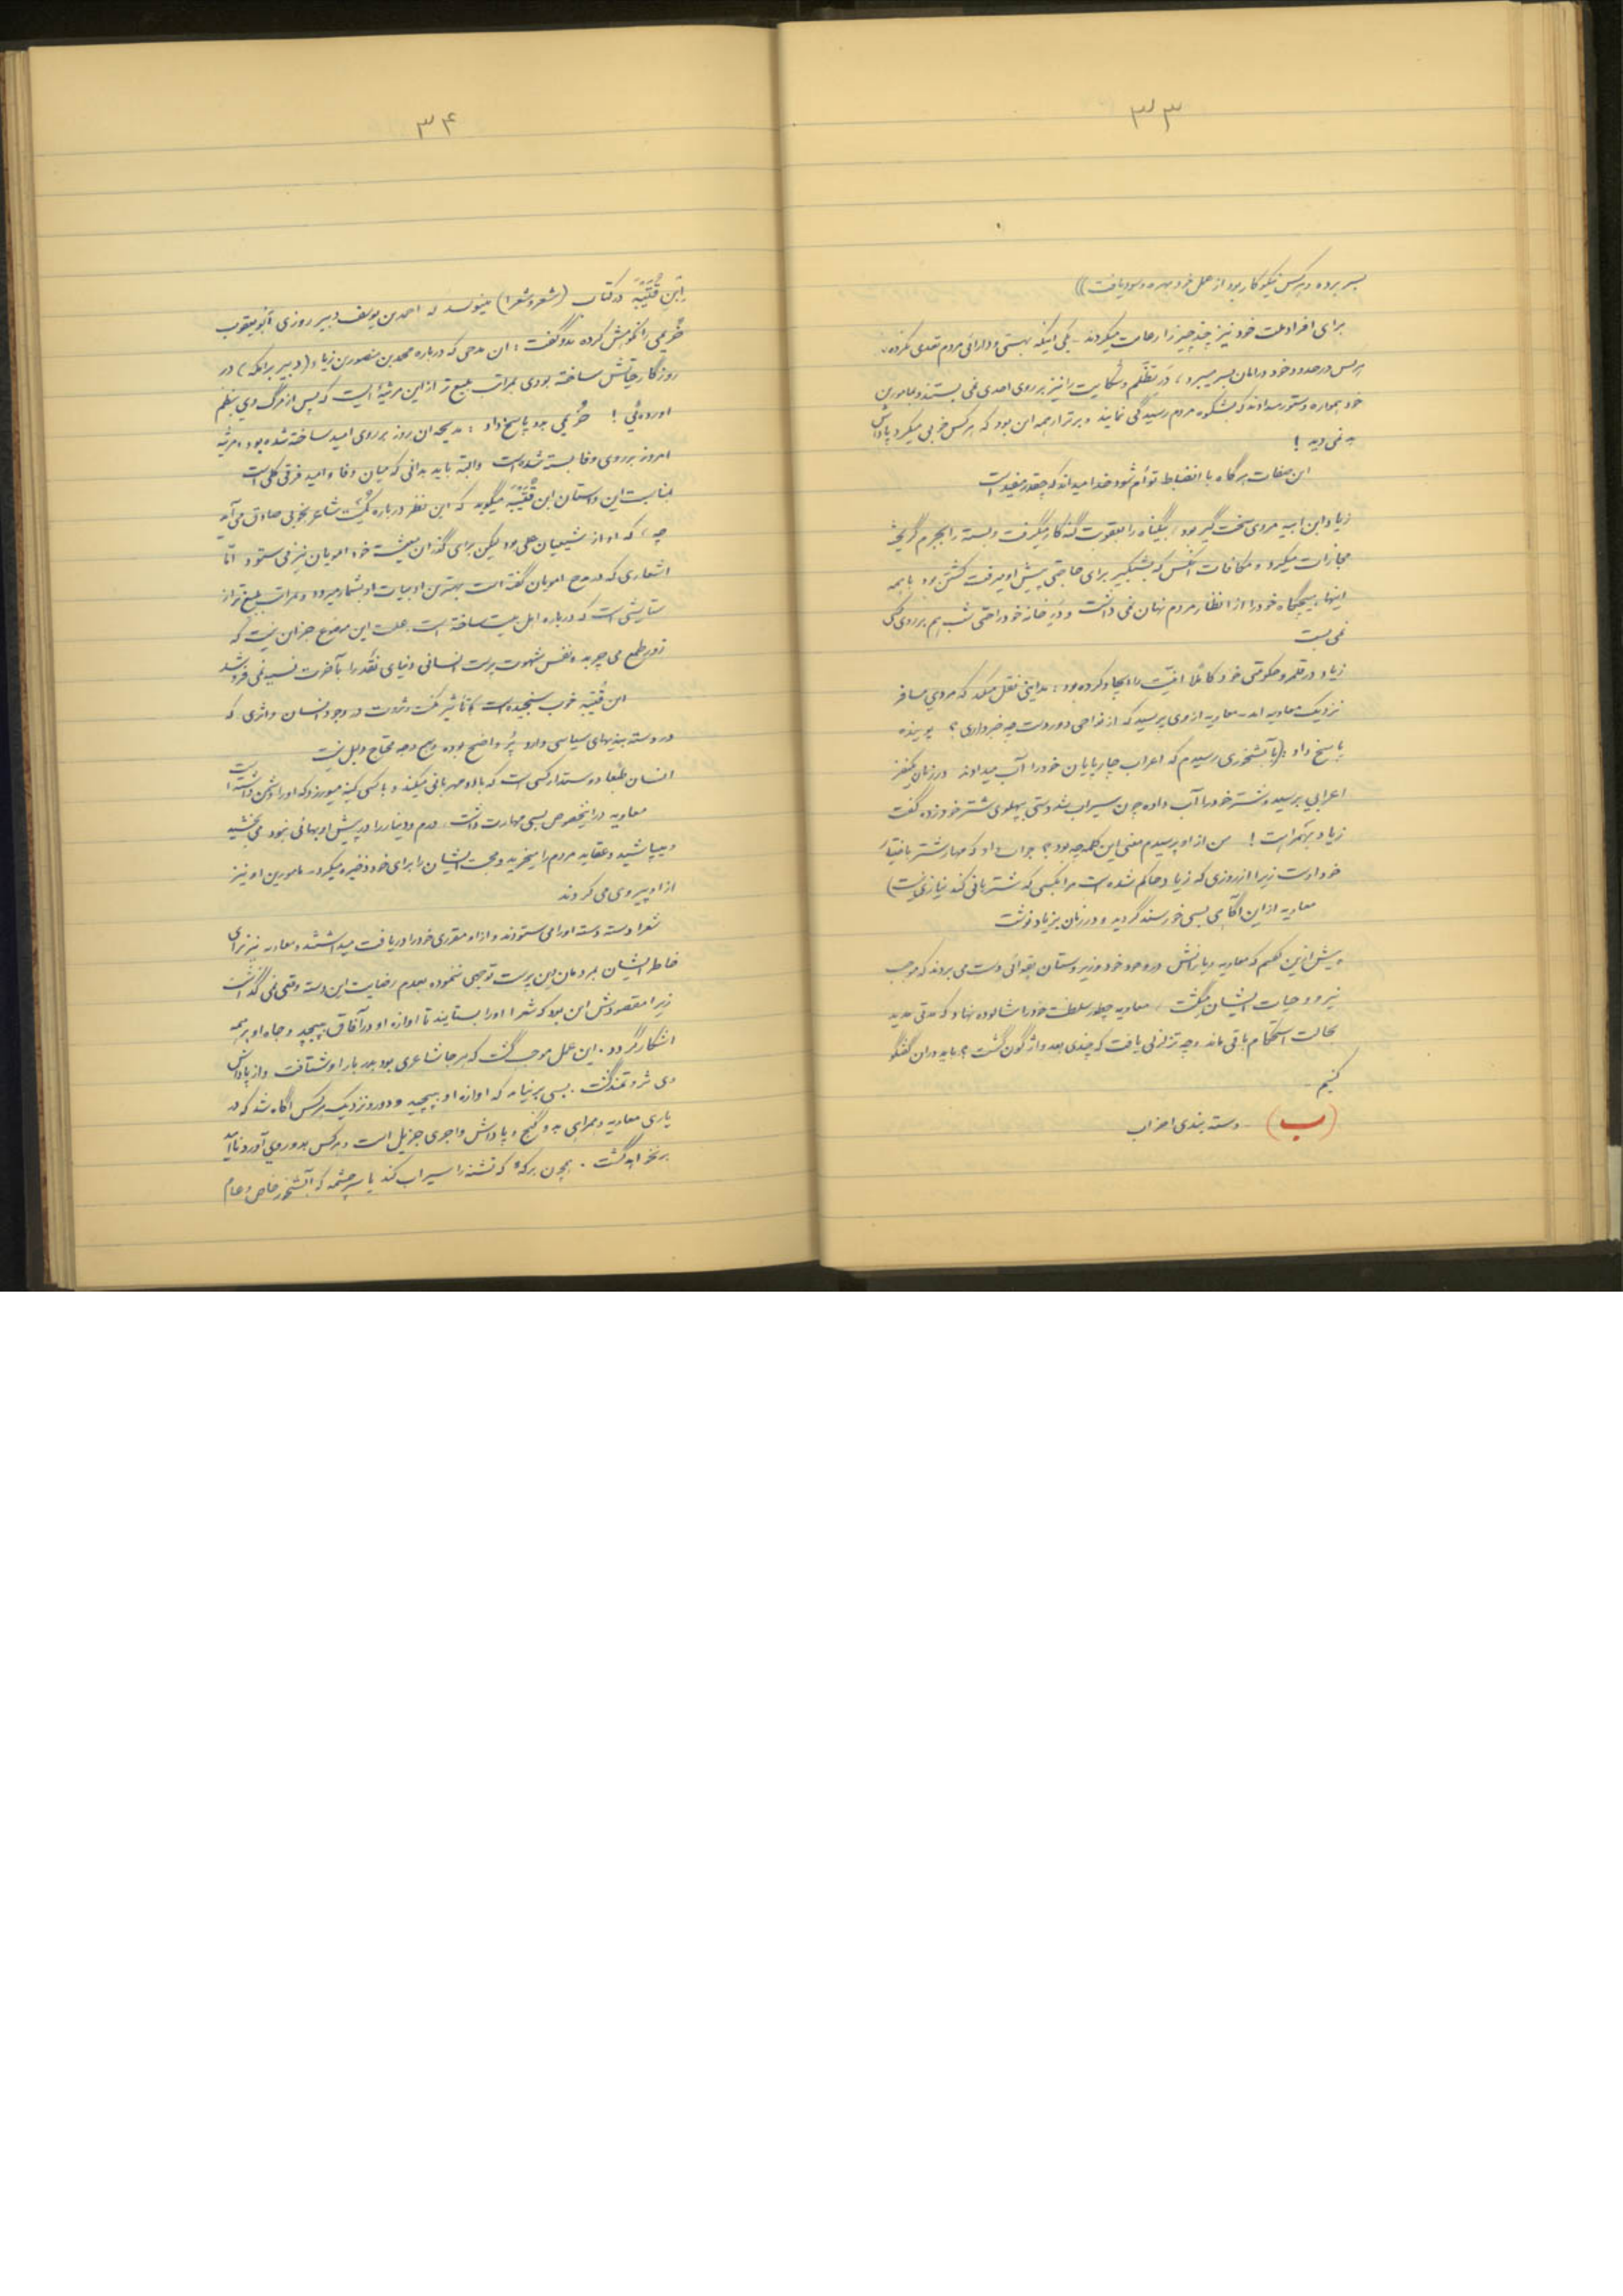 ۳۳
بسر برده و هرکس نیکوکار بود از عمل خود بهره و سود یافت))
برای افراد ملت خود نیز چند چیز را رعایت میکردند - یکی اینکه بهستی و دارائی مردم تعدی نکرده،
هرکس در حدود خود در امان بسر میبرد، در تظلم و شکایت را نیز بر روی احدی نمی بستند و بمامورین
خود همواره دستور میدادند که بشکوه مردم رسیدگی نمایند و برتر از همه این بود که هرکس خوبی میکرد پاداش
بد نمی دید !
این صفات هرگاه با انضباط توأم شود خدا میداند که چقدر مفید است
زیاد ابن ابیه مردی سخت گیر بود، بیگناه را بعقوبت گنه کار میگرفت و بسته را بجرم گریخته
مجازات میکرد و مکافات آنکس که شبگیر برای حاجتی پیش او میرفت کشتن بود با همه
اینها، هیچگاه خود را از انظار مردم نهان نمی داشت و در خانه خود را حتی شب هم بر روی کسی
نمی بست
زیاد در قلمرو حکومتی خود کاملاً امنیت را ایجاد کرده بود؛ مداینی نقل میکند که مردی مسافر
نزدیک معاویه آمد - معاویه از وی پرسید که از نواحی دوردست چه خبر داری؟ پوینده
پاسخ داد :(بآبشخوری رسیدم که اعراب چارپایان خود را آب میدادند در زمان یکنفر
اعرابی برسید و شتر خود را آب داده چون سیراب شد دستی بپهلوی شتر خود زده گفت
زیاد بهمراهت ! من از او پرسیدم معنی این کلمه چه بود؟ جواب داد که مهار شتر باختیار
خود اوست زیرا از روزی که زیاد حاکم شده است مرا بکسی که شتربانی کند نیازی نیست)
معاویه از این آگاهی بسی خورسند گردید و در زمان بزیاد نوشت
پیش از این گفتیم که معاویه و یارانش در وجود خود و زیردستان بقوائی دست می بردند که موجب
نیرو و حیات ایشان میگشت، معاویه چطور سلطنت خود را شالوده نهاد که مدتی مدید
بحالت استحکام باقی ماند و چه تزلزلی یافت که چندی بعد واژگون گشت؟ باید در آن گفتگو
کنیم -
(ب) - دسته بندی احزاب
۳۴
ابن قُتَیْبَه در کتاب (شعر و شعرا) مینویسد که احمد بن یوسف دبیر روزی ابویعقوب
خُرَیمی را نکوهش کرده بدو گفت : آن مدحی که درباره محمد بن منصور بن زیاد (دبیر برامکه) در
روزگار حیاتش ساخته بودی بمراتب بلیغ تر از این مرثیهٔ ایست که پس از مرگ وی بنظم
آورده ئی ! خُرَیمی بدو پاسخ داد : مدیحه آن روز بر روی امید ساخته شده بود و مرثیه
امروز بر روی وفا بسته شده است والبته باید بدانی که میان وفا و امید فرقی کلی است
بمناسبت این داستان ابن قُتَیْبَه میگوید که این نظر درباره کُمَیْت شاعر بخوبی صادق می آید
چه، که او از شیعیان علی بود لیکن برای گذران معیشت خود امویان نیز می ستود امّا
اشعاری که در مدح امویان گفته است بهترین ادبیات او بشمار میرود و بمراتب بلیغ تر از
ستایشی است که درباره اهل بیت ساخته است. علت این موضوع جز آن نیست که
زور طمع می چربد و نفس شهوت پرست انسانی دنیای نقد را بآخرت نسیه نمی فروشد
ابن قُتَیبه خوب سنجیده است تأثیر مکنت و ثروت در وجود انسان و اثری که
در دسته بندیهای سیاسی دارد پُر واضح بوده و هیچ وجه محتاج دلیل نیست
انسان طبعا دوستدار کسی است که با او مهربانی میکند و با کسی کینه میورزد که او را دشمن داشته است
معاویه در اینخصوص بسی مهارت داشت. درم و دینار را در پیش او بهائی نبود. می بخشید
و میپاشید و عقاید مردم را میخرید و محبت ایشان را برای خود ذخیره میکرد - مامورین او نیز
از او پیروی می کردند
شعرا دسته دسته او را می ستودند و از او مقرری خود را دریافت میداشتند و معاویه نیز برای
خاطر ایشان بمردمان دین پرست توجهی ننموده بعدم رضایت این دسته وقعی نمی گذاشت
زیرا مقصودش این بود که شعرا او را بستایند تا آوازه او در آفاق پیچید و جاه او بر همه
آشکار گردد. این عمل موجب گشت که هر جا شاعری بود بدربار او بشتافت و از پاداش
وی ثروتمند گشت. بسی بر نیامد که آوازه او پیچید و دور و نزدیک هرکس آگاه شد که در
یاری معاویه و همراهی بدو گنج و پاداش و اجری جزیل است و هرکس بدو روی آورد ناامید
بر نخواهد گشت. همچون برکهٔ که تشنه را سیراب کند یا سرچشمه که آبشخور خاص و عام